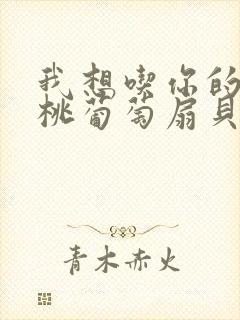 我想喫你的
桃葡萄扇貝
青木赤火